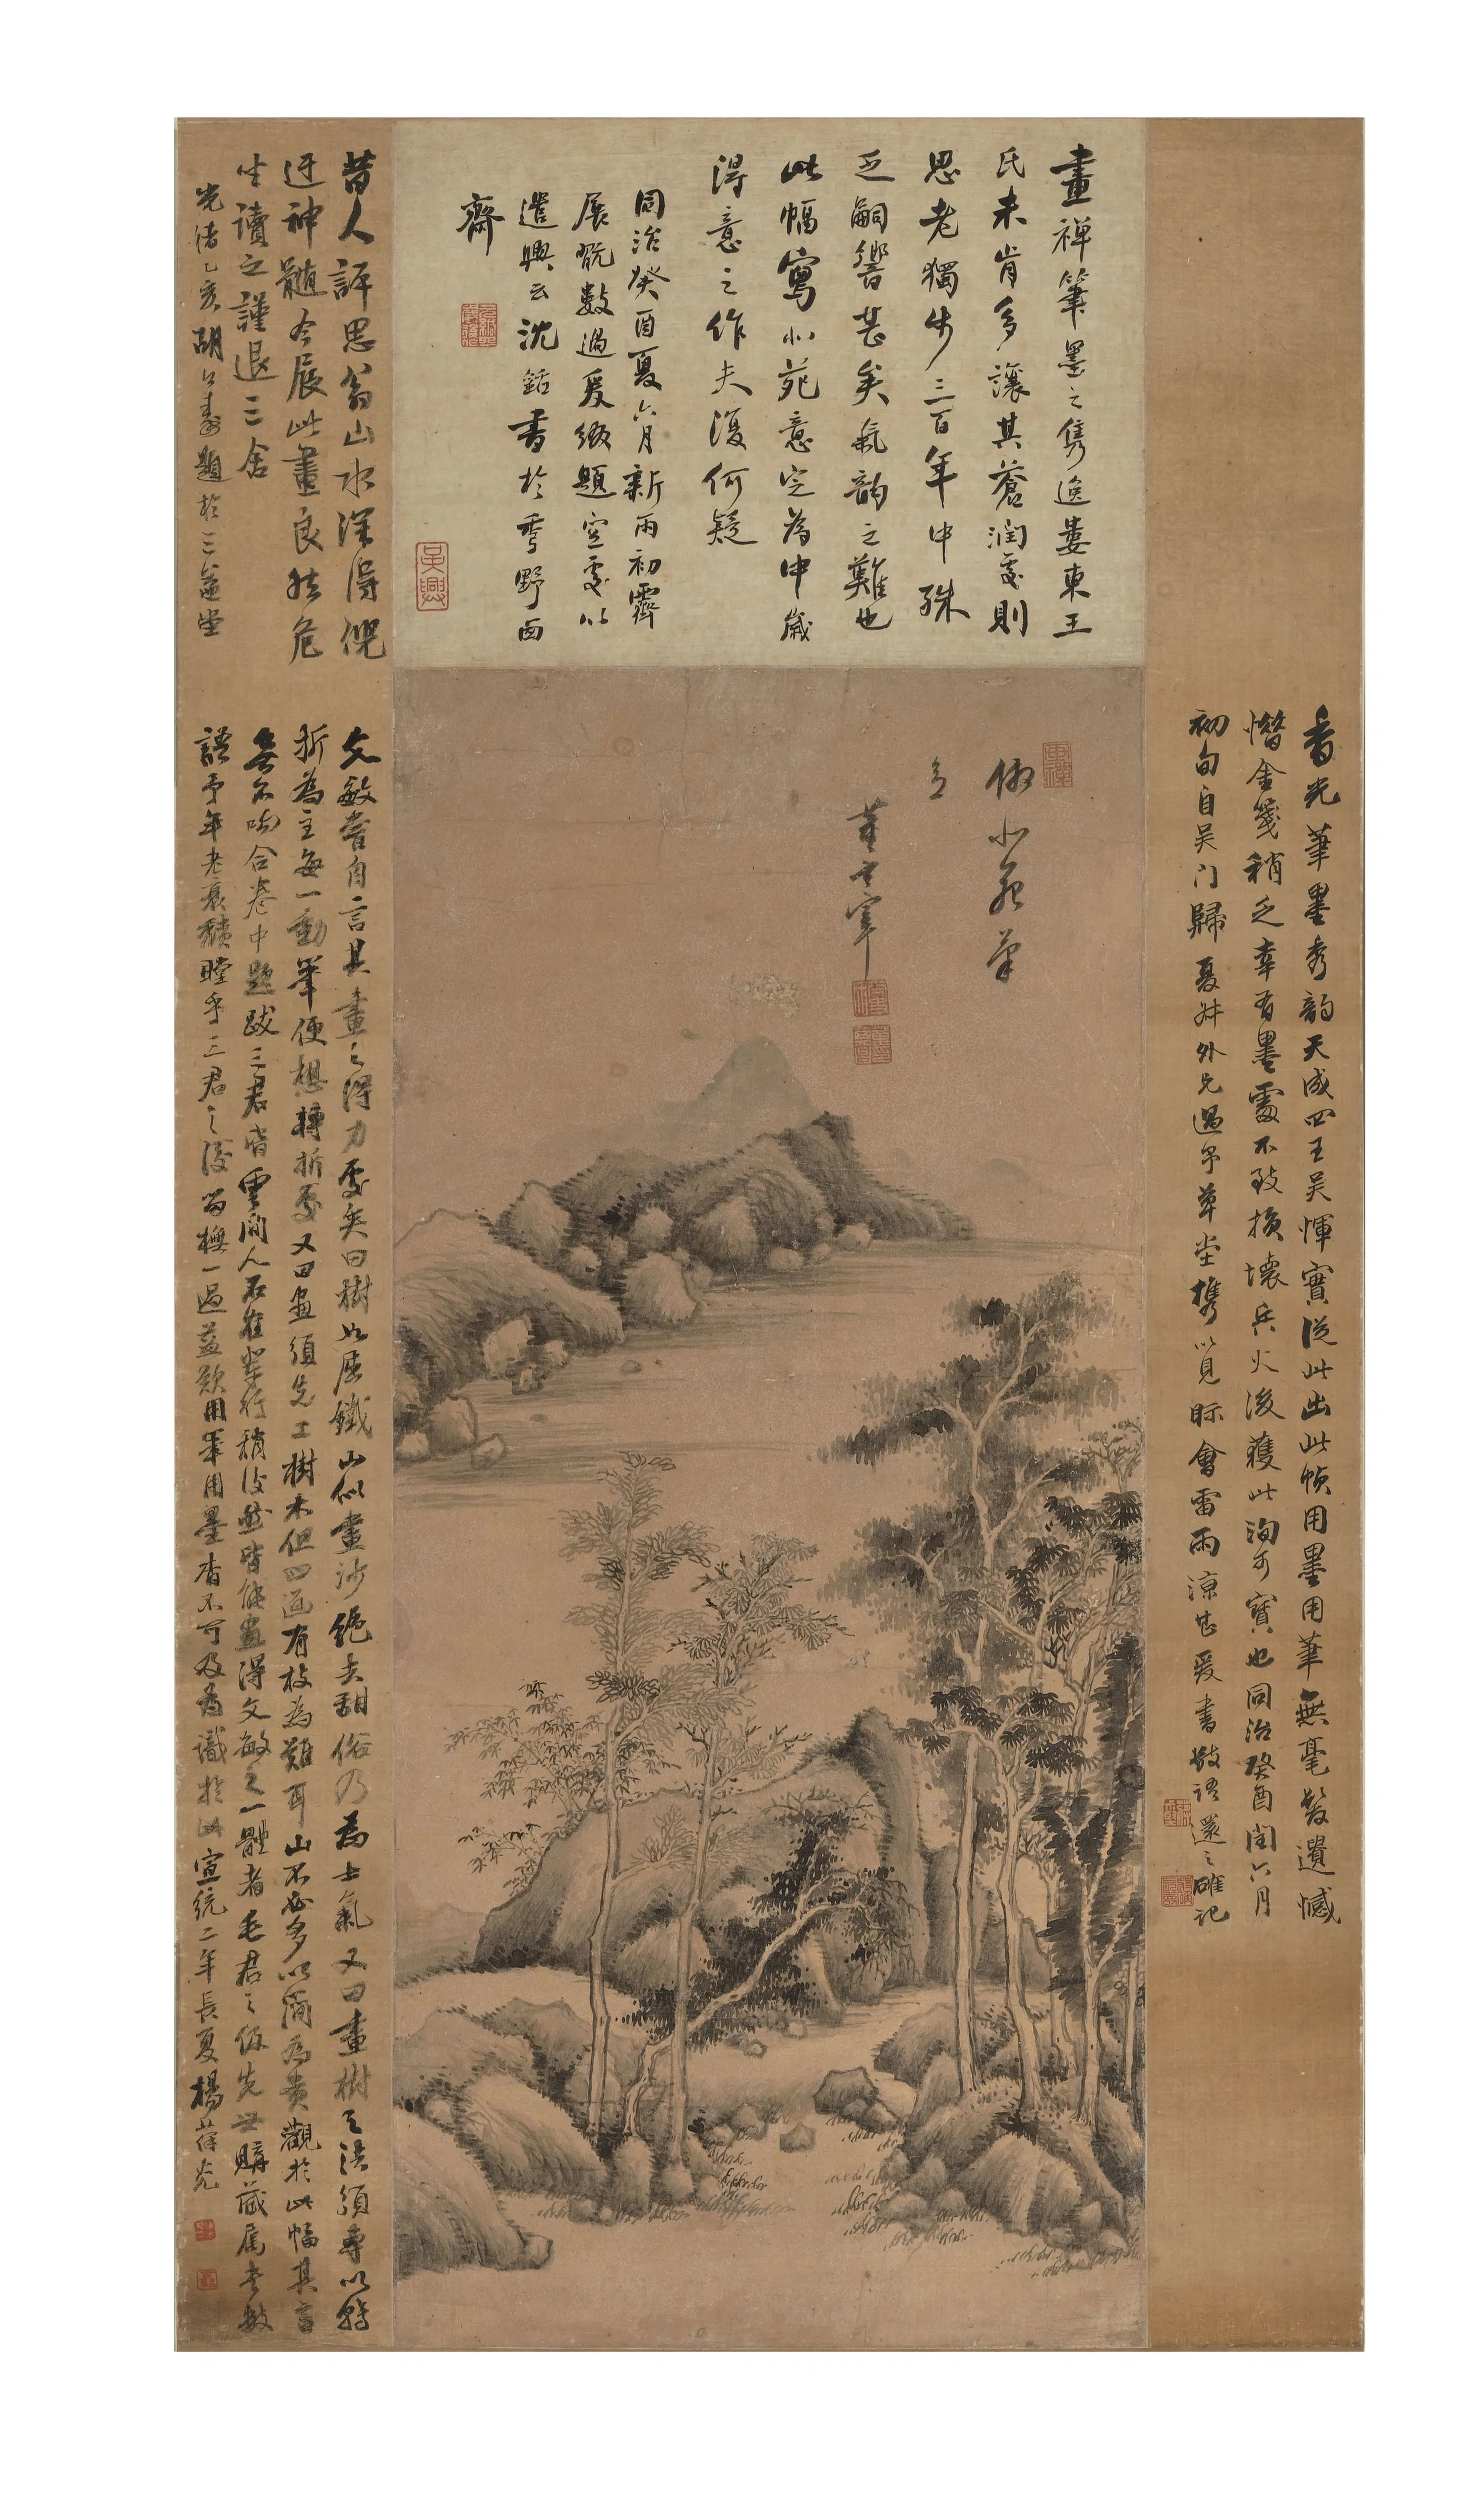 畫禪筆墨之雋逸婁東王
氏未肯多讓其蒼潤處則
思老獨步三百年中殊
乏嗣響甚矣氣韵之難也
此幅寫北苑意定為中歲
得意之作夫復何疑
同治癸酉夏六月新雨初霽
展翫數過爰綴題空處以
遣興云沈銛書於垂野西
齋
吳興
倣北苑筆
意
董玄宰
香光筆墨秀韵天成四王吳惲實從此出此幀用墨用筆無毫髮遺憾
惜金箋稍乏幸有墨處不致損壞兵火後獲此洵可寶也同治癸酉閏六月
初旬自吳門歸夏舛外兄過予草堂攜以見眎會雷雨涼甚爰書數語還之確記
昔人評思翁山水深得倪
迂神髓今展此畫良然危
坐讀之謹退三舍
光緒乙亥胡公壽題於三益堂
文敏嘗自言其畫之得力處矣曰樹如屈鐵山似畫沙絕去甜俗乃為士氣又曰畫樹之法須專以轉
折為主每一動筆便想轉折處又曰畫須先工樹木但四面有枝為難耳山不必多以簡為貴觀於此幅其言
無不吻合卷中題跋三君皆雲間人石在輩行稍後然皆能畫得文敏之一體者毛君之 先世購藏属書數
語予年老衰 瞠乎三君之後留橅一過益歎用筆用墨 不可及為識於此宣統二年長夏楊葆光